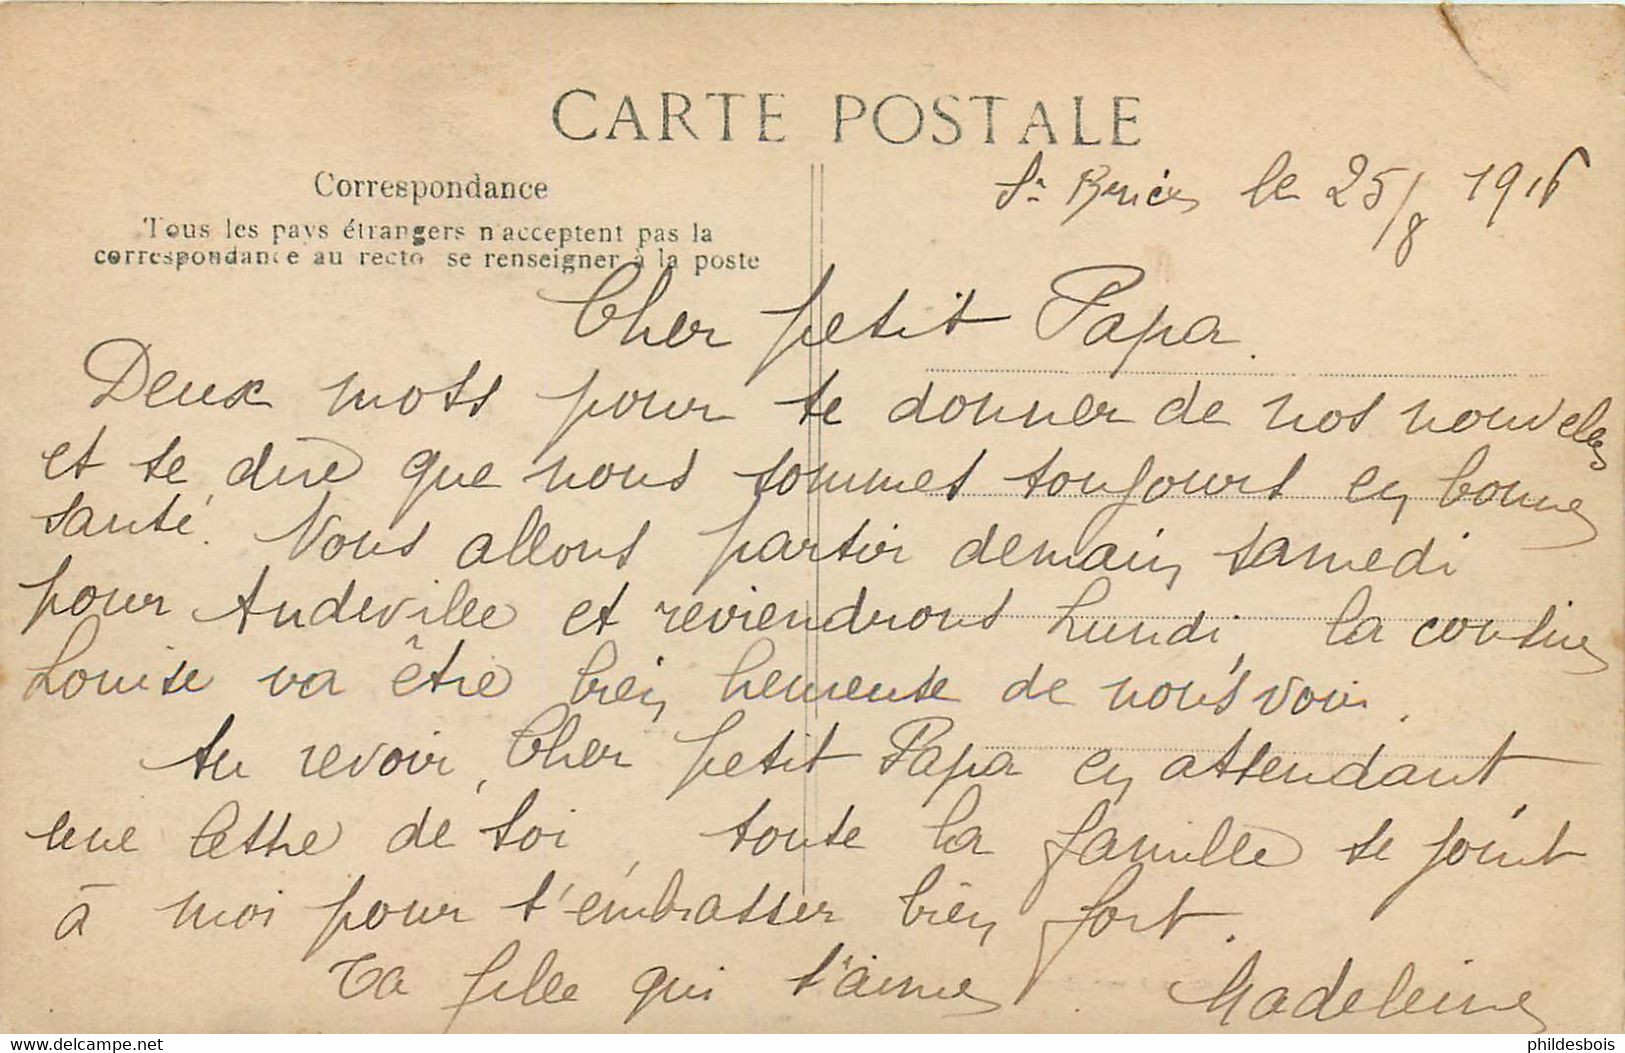 CARTE POSTALE
St Brice le 25/8 1916
Correspondance
Tous les pays étrangers n'acceptent pas la
correspondance au recto se renseigner à la poste
Cher petit Papa.
Deux mots pour te donner de nos nouvelles
et te dire que nous sommes toujours en bonne
santé. Nous allons partir demain samedi
pour Andeville et reviendrons Lundi, la cousine
Louise va être bien heureuse de nous voir.
Au revoir, Cher petit Papa en attendant
une lettre de toi, toute la famille se joint
à moi pour t'embrasser bien fort.
Ta fille qui t'aime Madeleine
delcampe.net
phildesbois